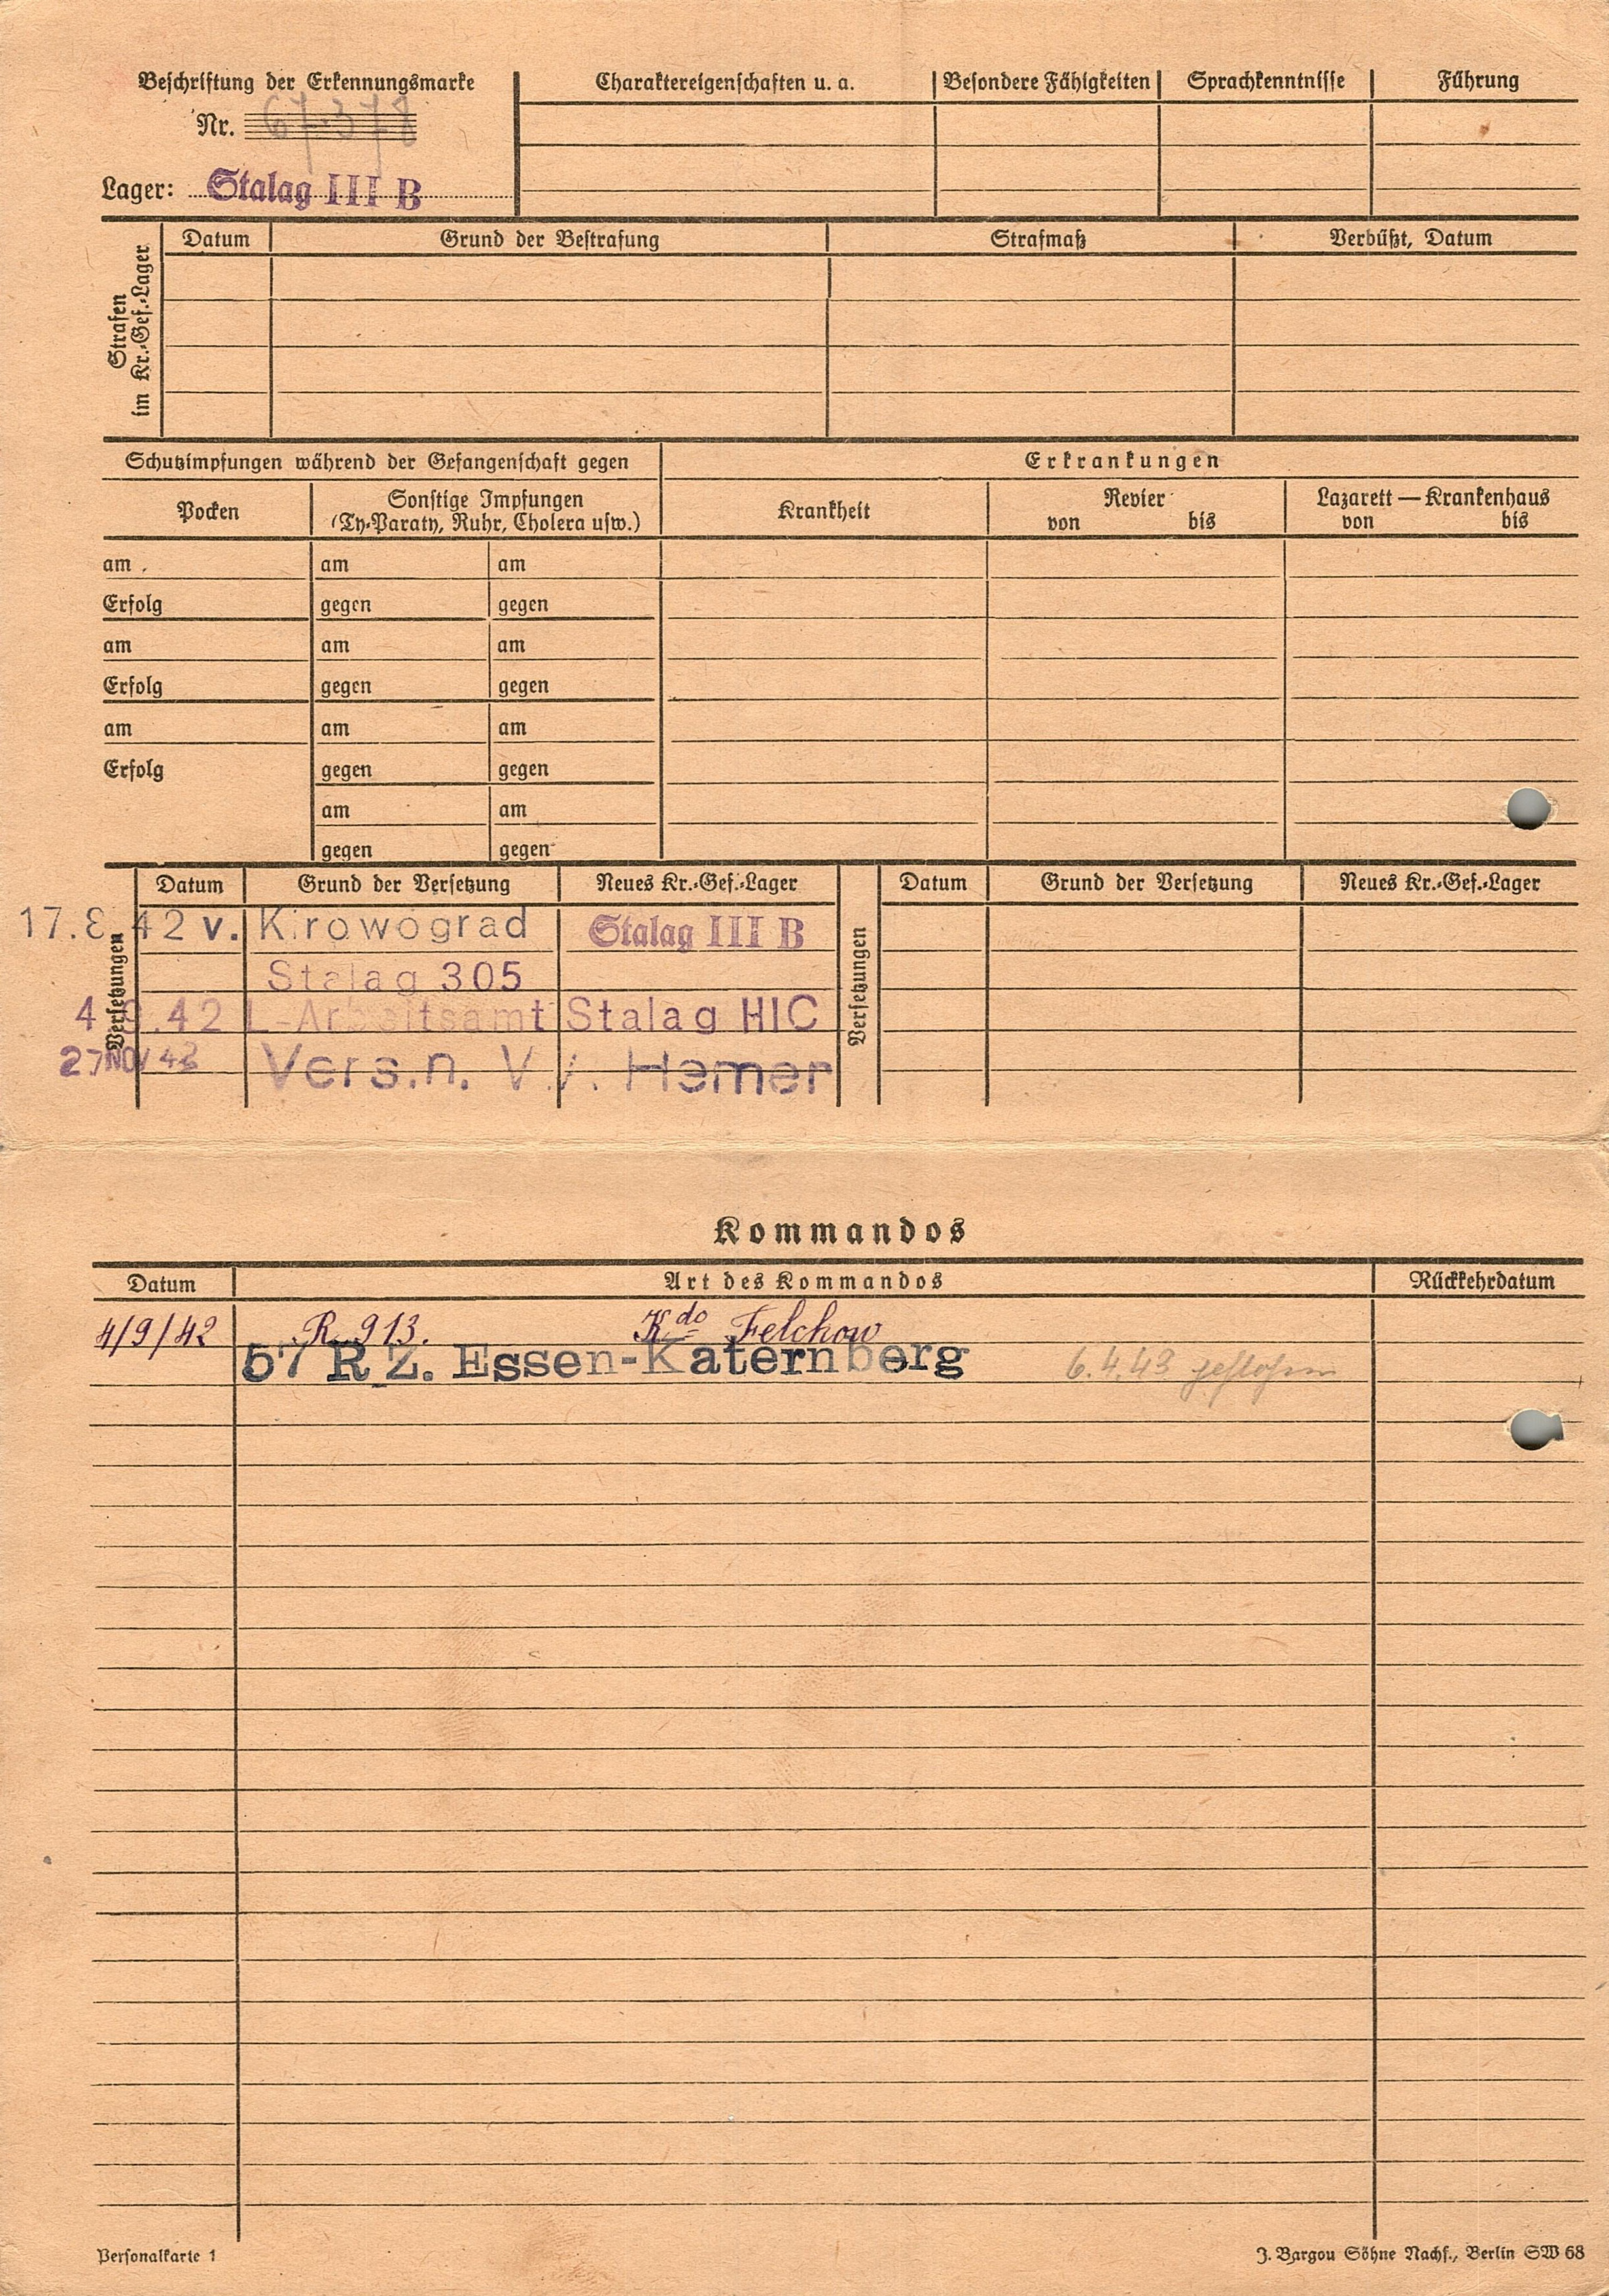 Beschriftung der Erkennungsmarke
Nr. 67378
Lager: Stalag III B
Charaktereigenschaften u. a. Besondere Fähigkeiten Sprachkenntnisse Führung
Strafen im Kr.-Gef.-Lager
Datum Grund der Bestrafung Strafmaß Verbüßt, Datum
Schutzimpfungen während der Gefangenschaft gegen
Erkrankungen
Pocken
Sonstige Impfungen
(Ty-Paraty, Ruhr, Cholera usw.)
Krankheit
Revier
von bis
Lazarett — Krankenhaus
von bis
am am am
Erfolg gegen gegen
am am am
Erfolg gegen gegen
am am am
Erfolg gegen gegen
am am
gegen gegen
Versetzungen
Datum Grund der Versetzung Neues Kr.-Gef.-Lager
17.8.42 v. Kirowograd Stalag III B
Stalag 305
4.9.42 L-Arbeitsamt Stalag IIIC
27 NOV 42 Vers.n. VI. Hemer
Versetzungen
Datum Grund der Versetzung Neues Kr.-Gef.-Lager
Kommandos
Datum Art des Kommandos Rückkehrdatum
4/9/42 R. 913. Kdo Felchow
57 R Z. Essen-Katernberg 6.4.43 geflohen
Personalkarte 1
J. Bargou Söhne Nachf., Berlin SW 68